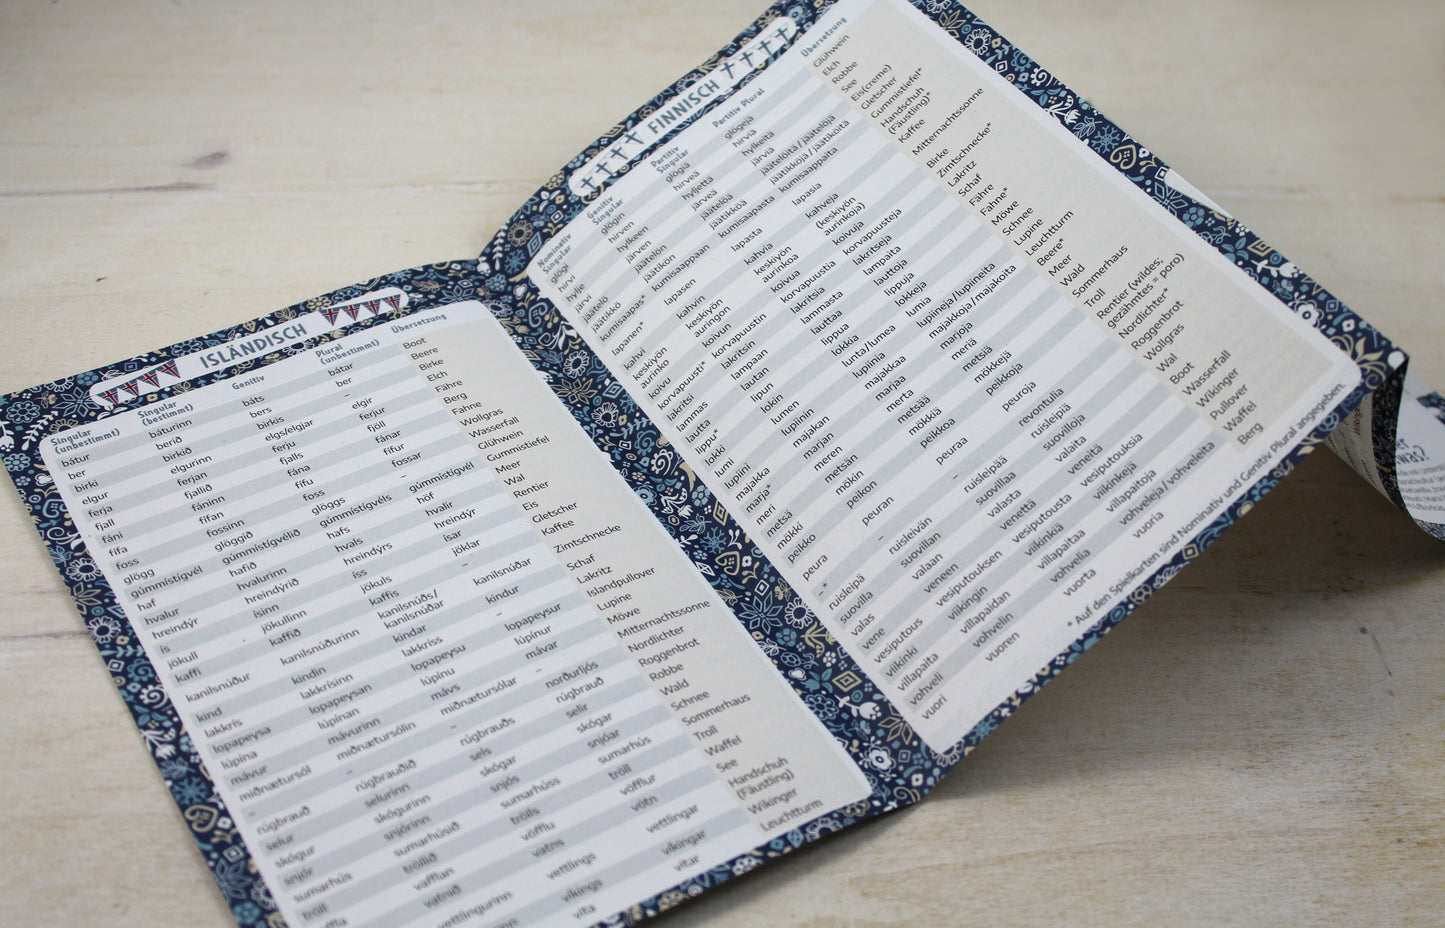 ISLÄNDISCH
Singular (unbestimmt) Singular (bestimmt) Genitiv Plural (unbestimmt) Übersetzung
bátur báturinn báts bátar Boot
ber berið bers ber Beere
birki birkið birkis – Birke
elgur elgurinn elgs/elgjar elgir Elch
ferja ferjan ferju ferjur Fähre
fjall fjallið fjalls fjöll Berg
fáni fáninn fána fánar Fahne
fífa fífan fífu fífur Wollgras
foss fossinn foss fossar Wasserfall
glögg glöggið glöggs – Glühwein
gúmmístígvél gúmmístígvélið gúmmístígvéls gúmmístígvél Gummistiefel
haf hafið hafs höf Meer
hvalur hvalurinn hvals hvalir Wal
hreindýr hreindýrið hreindýrs hreindýr Rentier
ís ísinn íss ísar Eis
jökull jökullinn jökuls jöklar Gletscher
kaffi kaffið kaffis – Kaffee
kanilsnúður kanilsnúðurinn kanilsnúðs/ kanilsnúðar kanilsnúðar Zimtschnecke
kind kindin kindar kindur Schaf
lakkrís lakkrísinn lakkríss – Lakritz
lopapeysa lopapeysan lopapeysu lopapeysur Islandpullover
lúpína lúpínan lúpínu lúpínur Lupine
mávur mávurinn mávs mávar Möwe
miðnætursól miðnætursólin miðnætursólar – Mitternachtssonne
– – – norðurljós Nordlichter
rúgbrauð rúgbrauðið rúgbrauðs rúgbrauð Roggenbrot
selur selurinn sels selir Robbe
skógur skógurinn skógar skógar Wald
snjór snjórinn snjós snjóar Schnee
sumarhús sumarhúsið sumarhúss sumarhús Sommerhaus
tröll tröllið trölls tröll Troll
vafflan vöfflu vöfflur Waffel
vatnið vatns vötn See
vettlingurinn vettlings vettlingar Handschuh (Fäustling)
víkings víkingar Wikinger
vita vitar Leuchtturm
FINNISCH
Nominativ Singular Genitiv Singular Partitiv Singular Partitiv Plural Übersetzung
glögi glögin glögiä glögejä Glühwein
hirvi hirven hirveä hirviä Elch
hylje hylkeen hyljettä hylkeitä Robbe
järvi järven järveä järviä See
jäätelö jäätelön jäätelöä jäätelöitä / jäätelöjä Eis(creme)
jäätikkö jäätikön jäätikköä jäätikköjä / jäätiköitä Gletscher
kumisaapas* kumisaappaan kumisaapasta kumisaappaita Gummistiefel*
lapanen* lapasen lapasta lapasia Handschuh (Fäustling)*
kahvi kahvin kahvia kahveja Kaffee
keskiyön aurinko keskiyön auringon keskiyön aurinkoa (keskiyön aurinkoja) Mitternachtssonne
koivu koivun koivua koivuja Birke
korvapuusti* korvapuustin korvapuustia korvapuusteja Zimtschnecke*
lakritsi lakritsin lakritsia lakritseja Lakritz
lammas lampaan lammasta lampaita Schaf
lautta lautan lauttaa lauttoja Fähre
lippu* lipun lippua lippuja Fahne*
lokki lokin lokkia lokkeja Möwe
lumi lumen lunta/lumea lumia Schnee
lupiini lupiinin lupiinia lupiineja/lupiineita Lupine
majakka majakan majakkaa majakkoja/majakoita Leuchtturm
marja* marjan marjaa marjoja Beere*
meri meren merta meriä Meer
metsä metsän metsää metsiä Wald
mökki mökin mökkiä mökkejä Sommerhaus
peikko peikon peikkoa peikkoja Troll
peura peuran peuraa peuroja Rentier (wildes, gezähmtes = poro)
–* – – revontulia Nordlichter*
ruisleipä ruisleivän ruisleipää ruisleipiä Roggenbrot
suovilla suovillan suovillaa suovilloja Wollgras
valas valaan valasta valaita Wal
vene veneen venettä veneitä Boot
vesiputous vesiputouksen vesiputousta vesiputouksia Wasserfall
viikinki viikingin viikinkiä viikinkejä Wikinger
villapaita villapaidan villapaitaa villapaitoja Pullover
vohveli vohvelin vohvelia vohveleja / vohveleita Waffel
vuori vuoren vuorta vuoria Berg
* Auf den Spielkarten sind Nominativ und Genitiv Plural angegeben.